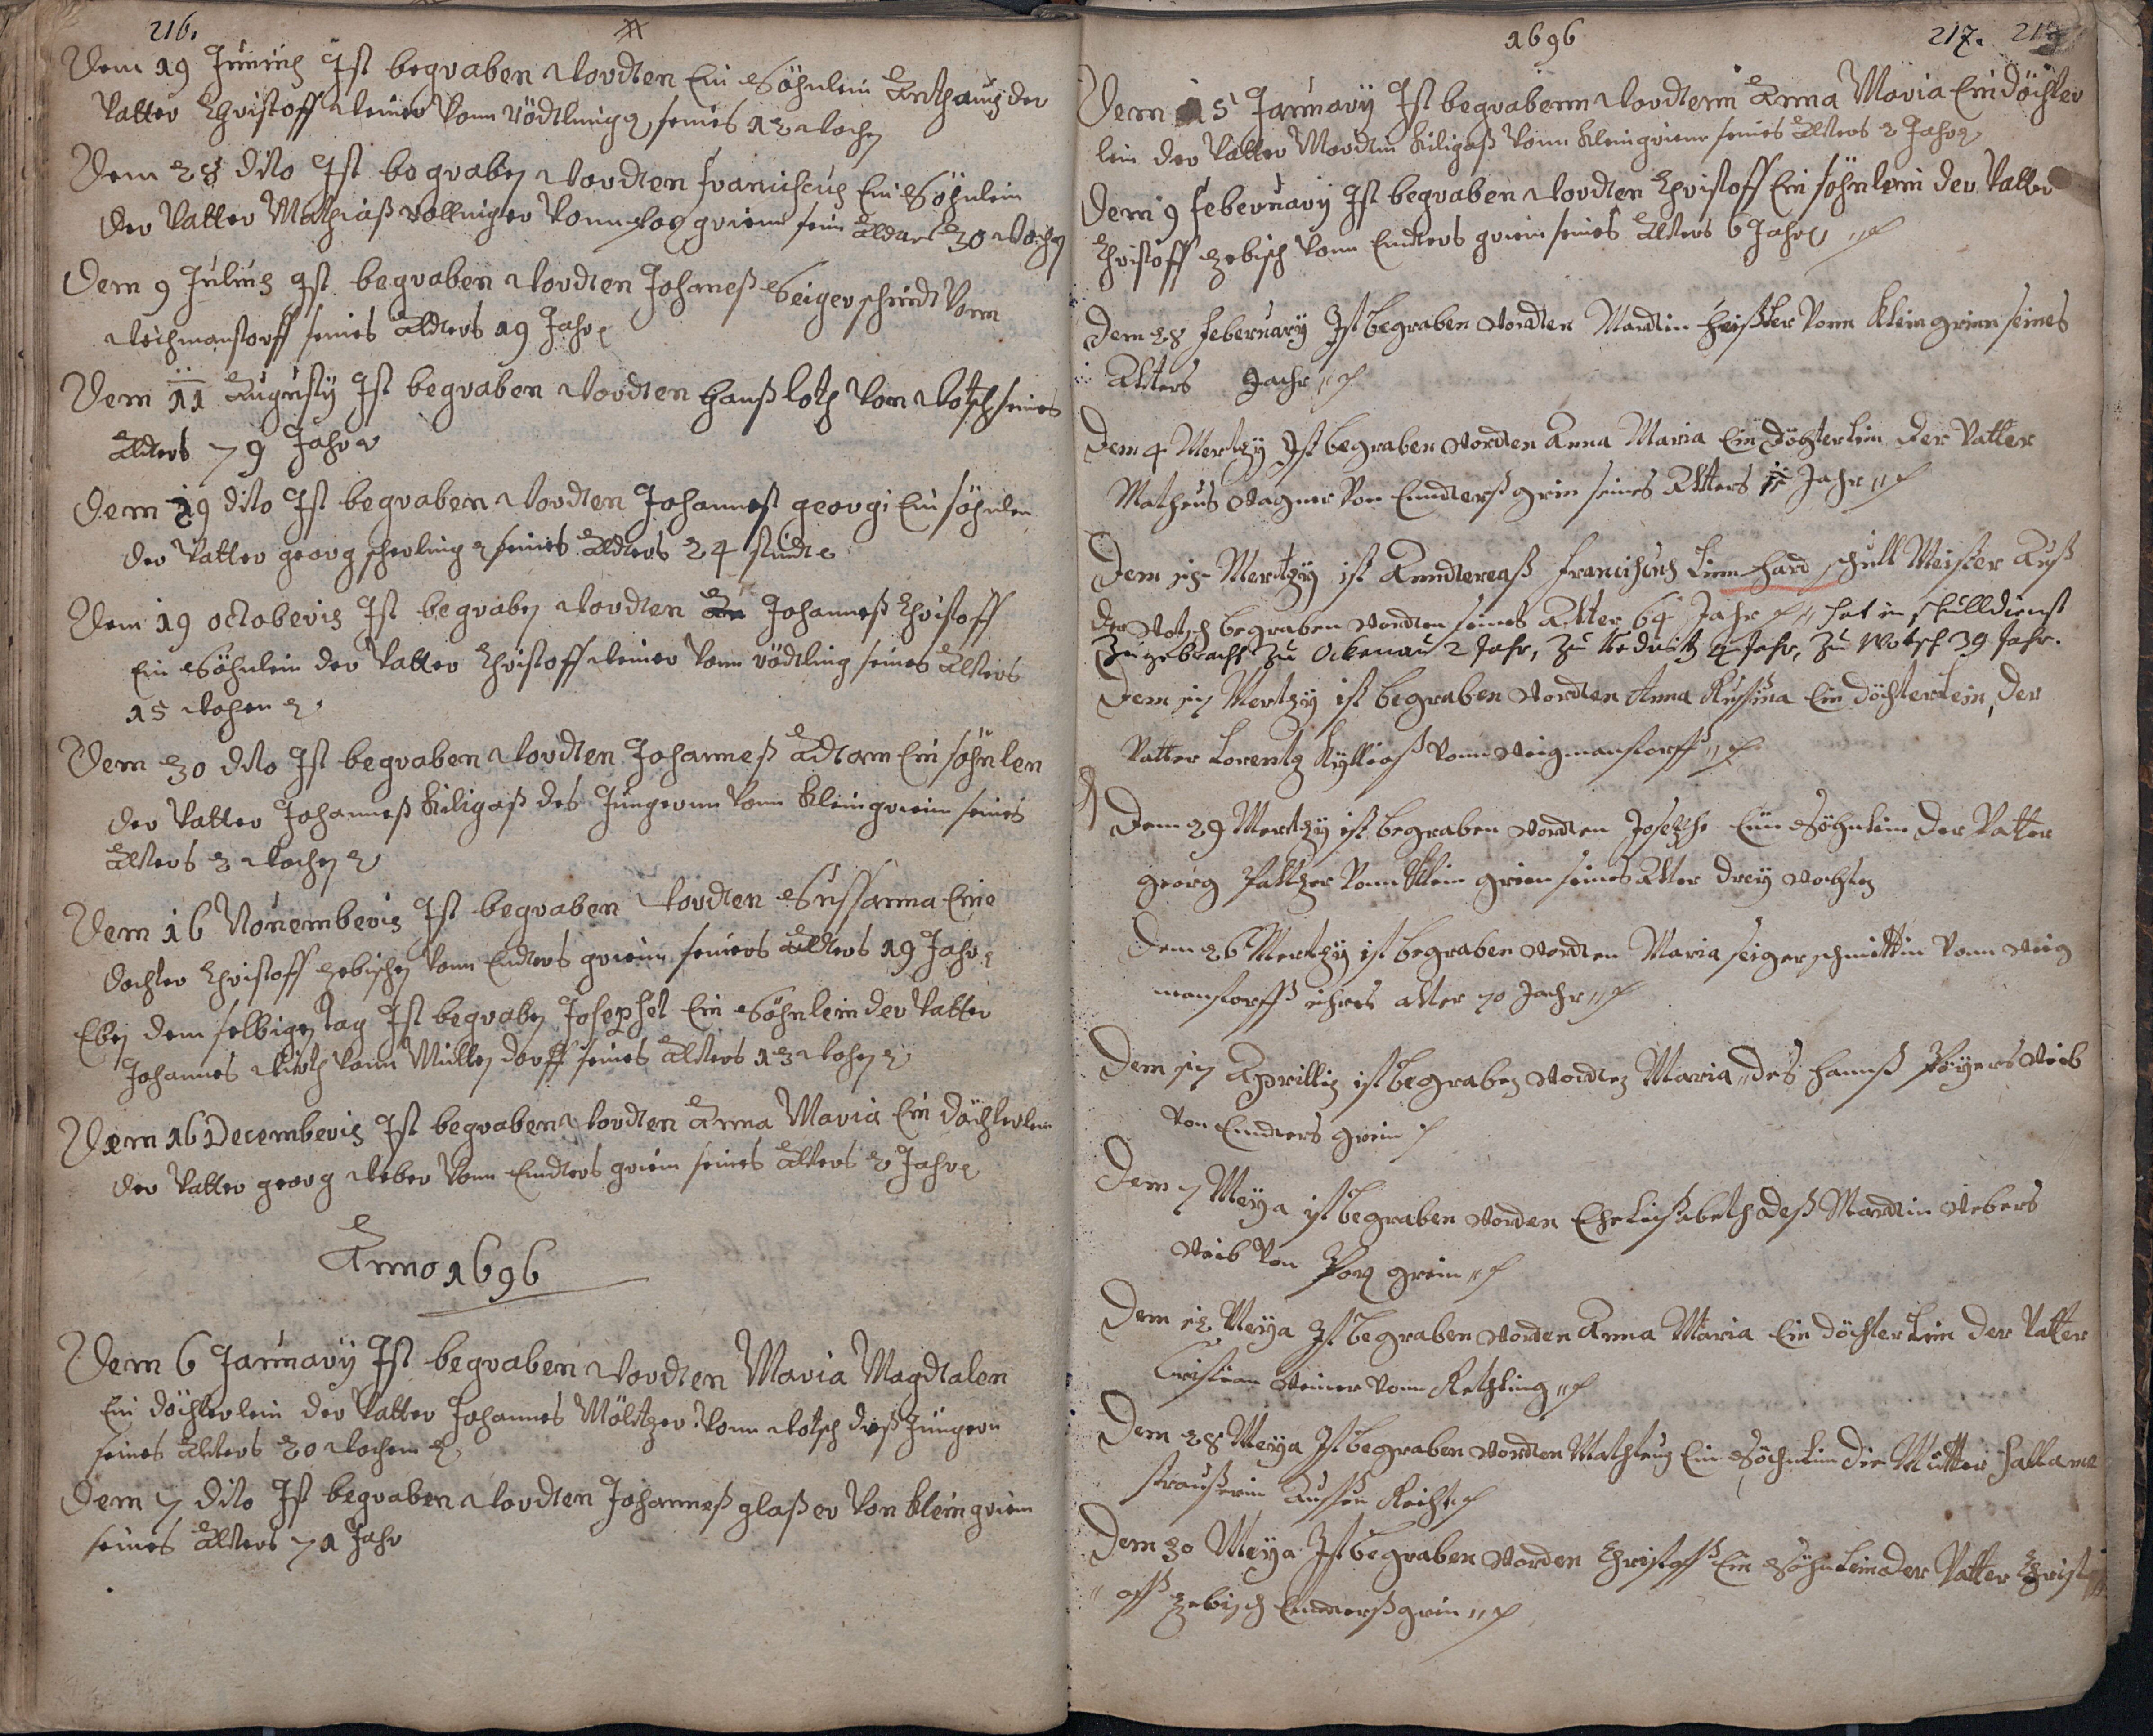 216.
Dem 19 Junius Ist begraben Wordten Ein Söhnlein Anthonius der
Vatter Christoff Weiner Vonn rödtling seines 12 Wochen
Dem 28 dito Ist begraben Wordten francischus Ein Söhnlein
der Vatter Mathiaß Vollniger Vonn grienn sein Alders 30 Wochen
Dem 9 Julius Ist begraben Wordten Johaneß Seigerschmidt Vonn
Weichmanstorff seines Alders 19 Jahr
Dem 11 Augusty Ist begraben Wordten Hanß loth Von Wotsch seines
Alders 79 Jahr
Dem 19 dito Ist begraben Wordten Johannest georgi Ein söhnlen
der Vatter georg scherling seines Alders 24 stundt
Dem 19 octoberis Ist begraben Wordten Johanneß Christoff
Ein Söhnlein der Vatter Christoff Weiner Vonn rödtling seines Alters
15 Wochen
Dem 30 dito Ist begraben Wordten Johanneß Adtam Ein söhnlen
der Vatter Johanneß Kiligaß des Jungernn Vonn Kleingrienn seines
Alters 2 Wochen
Dem 16 Nouemberis Ist begraben Wordten Sussanna Eine
dochter Christoff zebischen Vonn Endters grienn seiners Alders 19 Jahr
Eben dem selbigen tag Ist begraben Josephet Ein Söhnlein der Vatter
Johannes Wirth Vonn Müllendorff seines Alters 13 Wochen
Dem 16 Decemberis Ist begraben Wordten Anna Maria Ein döchterlein
der Vatter georg Weber Vonn Endters grienn seines Alters 2 Jahr
Anno 1696
Dem 6 January Ist begraben Wordten Maria Magdtalen
Ein döchterlein der Vatter Johannes Möltzer Vonn Wotsch deß Jungern
seines Alters 20 Wochen
Dem 7 dito Ist begraben Wordten Johanneß glaßer Von kleingrien
seines Alters 71 Jahr
1696
217.
Dem 15 Januarij Ist begrabenn Wordtenn Anna Maria Ein döchter
lein der Vatter Mardtin Kiligaß Vonn Kleingrienn seines Alters 2 Jahr
Dem 9 Februarij Ist begraben Wordten Christoff Ein söhnlein der Vatter
Christoff zebisch Vonn Endters grien seines Alters 6 Jahr
Dem 28 Februarij Ist begraben Wordten Mardtin Heißler Vonn Kleingrinn seines
Alters Jachr
Dem 4 Mertzy Ist begraben Wordten Anna Maria Ein Döchterlein der Vatter
Matheus Wagner Von Enndterßgrin seines Alters 11 Jahr
Dem 15 Mertzy ist Anndtereaß Francischus Linnhard schull Meister Auß
der Wotsch begraben Wordten seines Alter 64 Jahr hat in schulldienst
Zugebracht zu Ockenau 2 Jahr, zu Kedwitz Jahr, zu Wotsch 39 Jahr.
Dem 17 Mertzy ist begraben Wordten Anna Rusina Ein döchterlein, der
Vatter Lorentz Kylliaß Vonn Weigmanstorff
Dem 29 Mertzy ist begraben Wordten Josephe Ein Söhnlein der Vatter
georg Paltzer Vonn Klein grien seines Alter drey Wochen
Dem 26 Mertzy ist begraben Wordten Maria seigerschmittin Vonn Weig
manstorff ihres alter 70 Jachr
Dem 17 Aprillis ist begraben Wordten Maria des Hannß Pöyers Weib
Von Endters grein
Dem 7 Meya ist begraben Worden Eheleißabetha deß Mardtin Webers
Weib Von grein
Dem 12 Meya Ist begraben Worden Anna Maria Ein döchterlein der Vatter
Cristian Weiner Vonn Rethling
Dem 28 Meya Ist begraben Wordten Matheus Ein Söhnlein die Mutter
straußerin Aussen Reicht
Dem 30 Meya Ist begraben Worden Christoff Ein Söhnlein der Vatter Christ
off zebisch Enndterßgrin